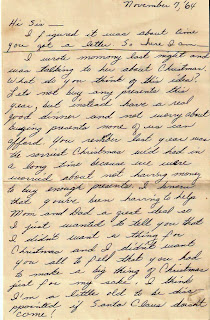 November 7, 64
Hi Sis —
I figured it was about time
you got a letter So here I am —
I wrote mommy last night and
was talking to her about Christmas.
What do you think of this idea?
Lets not buy any presents this
year, but instead have a real
good dinner and not worry about
buying presents none of us can
afford. You rather last year was
the sorriest Christmas we'd had in
a long time because we were
worried about not having money
to buy enough presents. I know
that you've been having to help
Mom and Dad a great deal so
I just wanted to tell you that
I didn't want a thing for
Christmas and I didn't want
you all to feel that you had
to make a big thing of Christmas
just for my sake. I think
I am a little old to be
if Santa Claus doesn't
come!